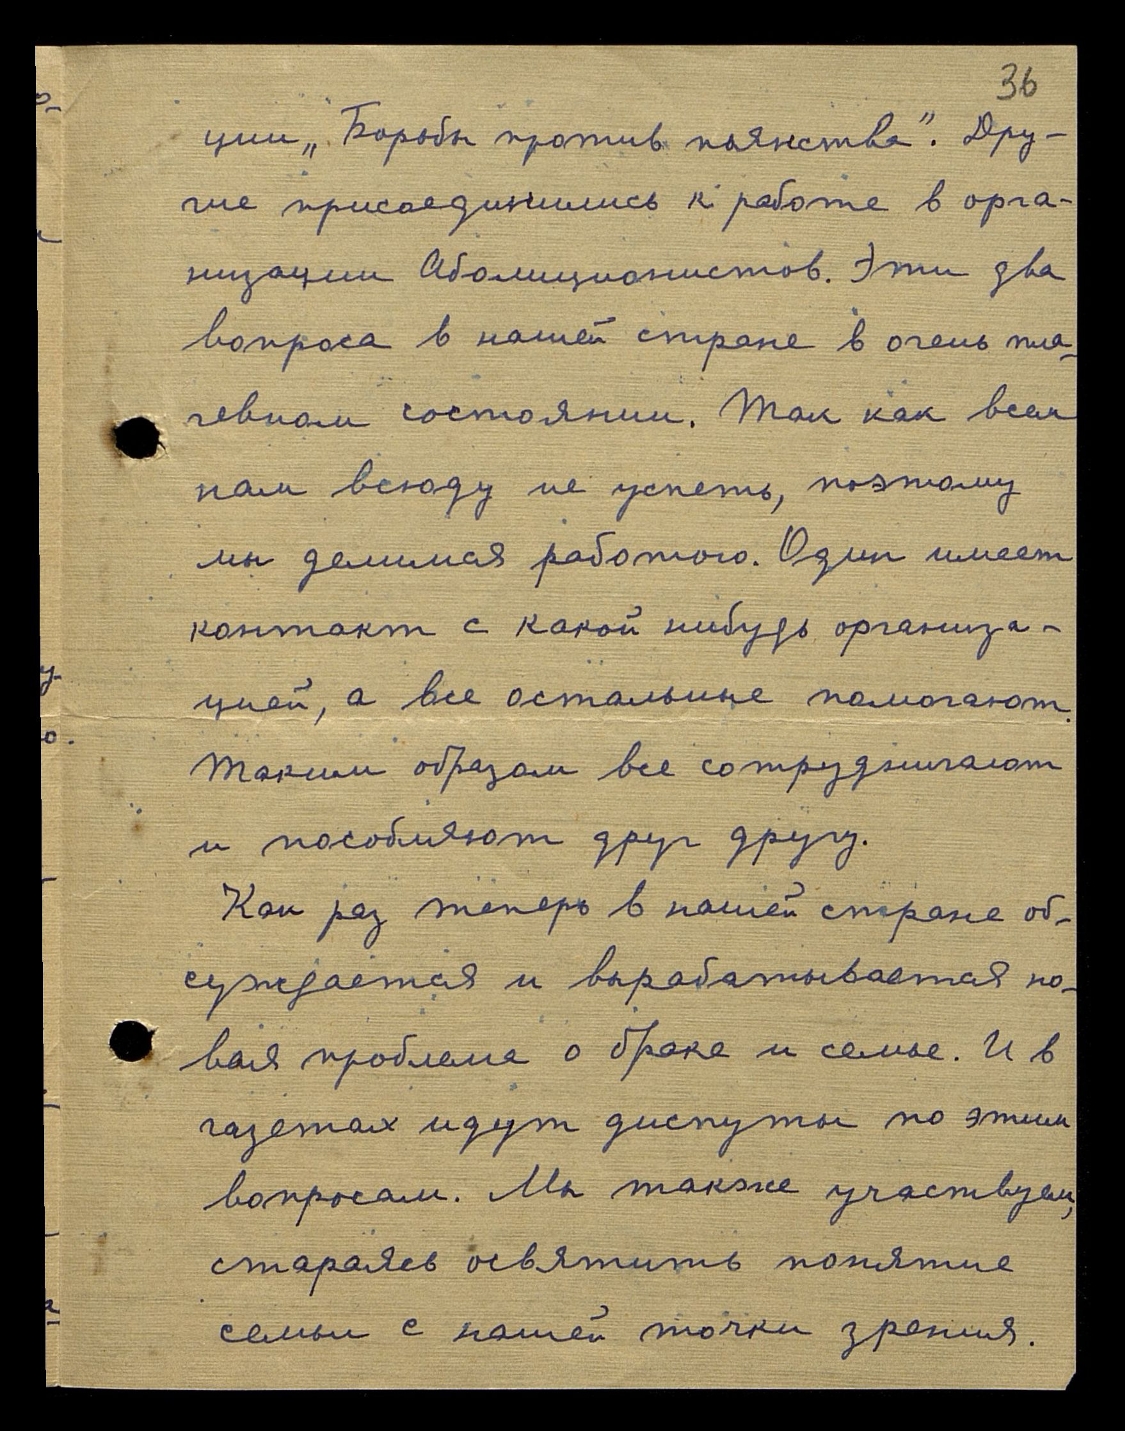 36
ции „Борьбы против пьянства”. Дру-
гие присоединились к работе в орга-
низации Аболиционистов. Эти два
вопроса в нашей стране в очень пла-
чевном состоянии. Так как всем
нам всюду не успеть, поэтому
мы делимся работою. Один имеет
контакт с какой нибудь организа-
цией, а все остальные помогают.
Таким образом все сотрудничают
и пособляют друг другу.
Как раз теперь в нашей стране об-
суждается и вырабатывается но-
вая проблема о браке и семье. И в
газетах идут диспуты по этим
вопросам. Мы также участвуем,
стараясь освятить понятие
семьи с нашей точки зрения.